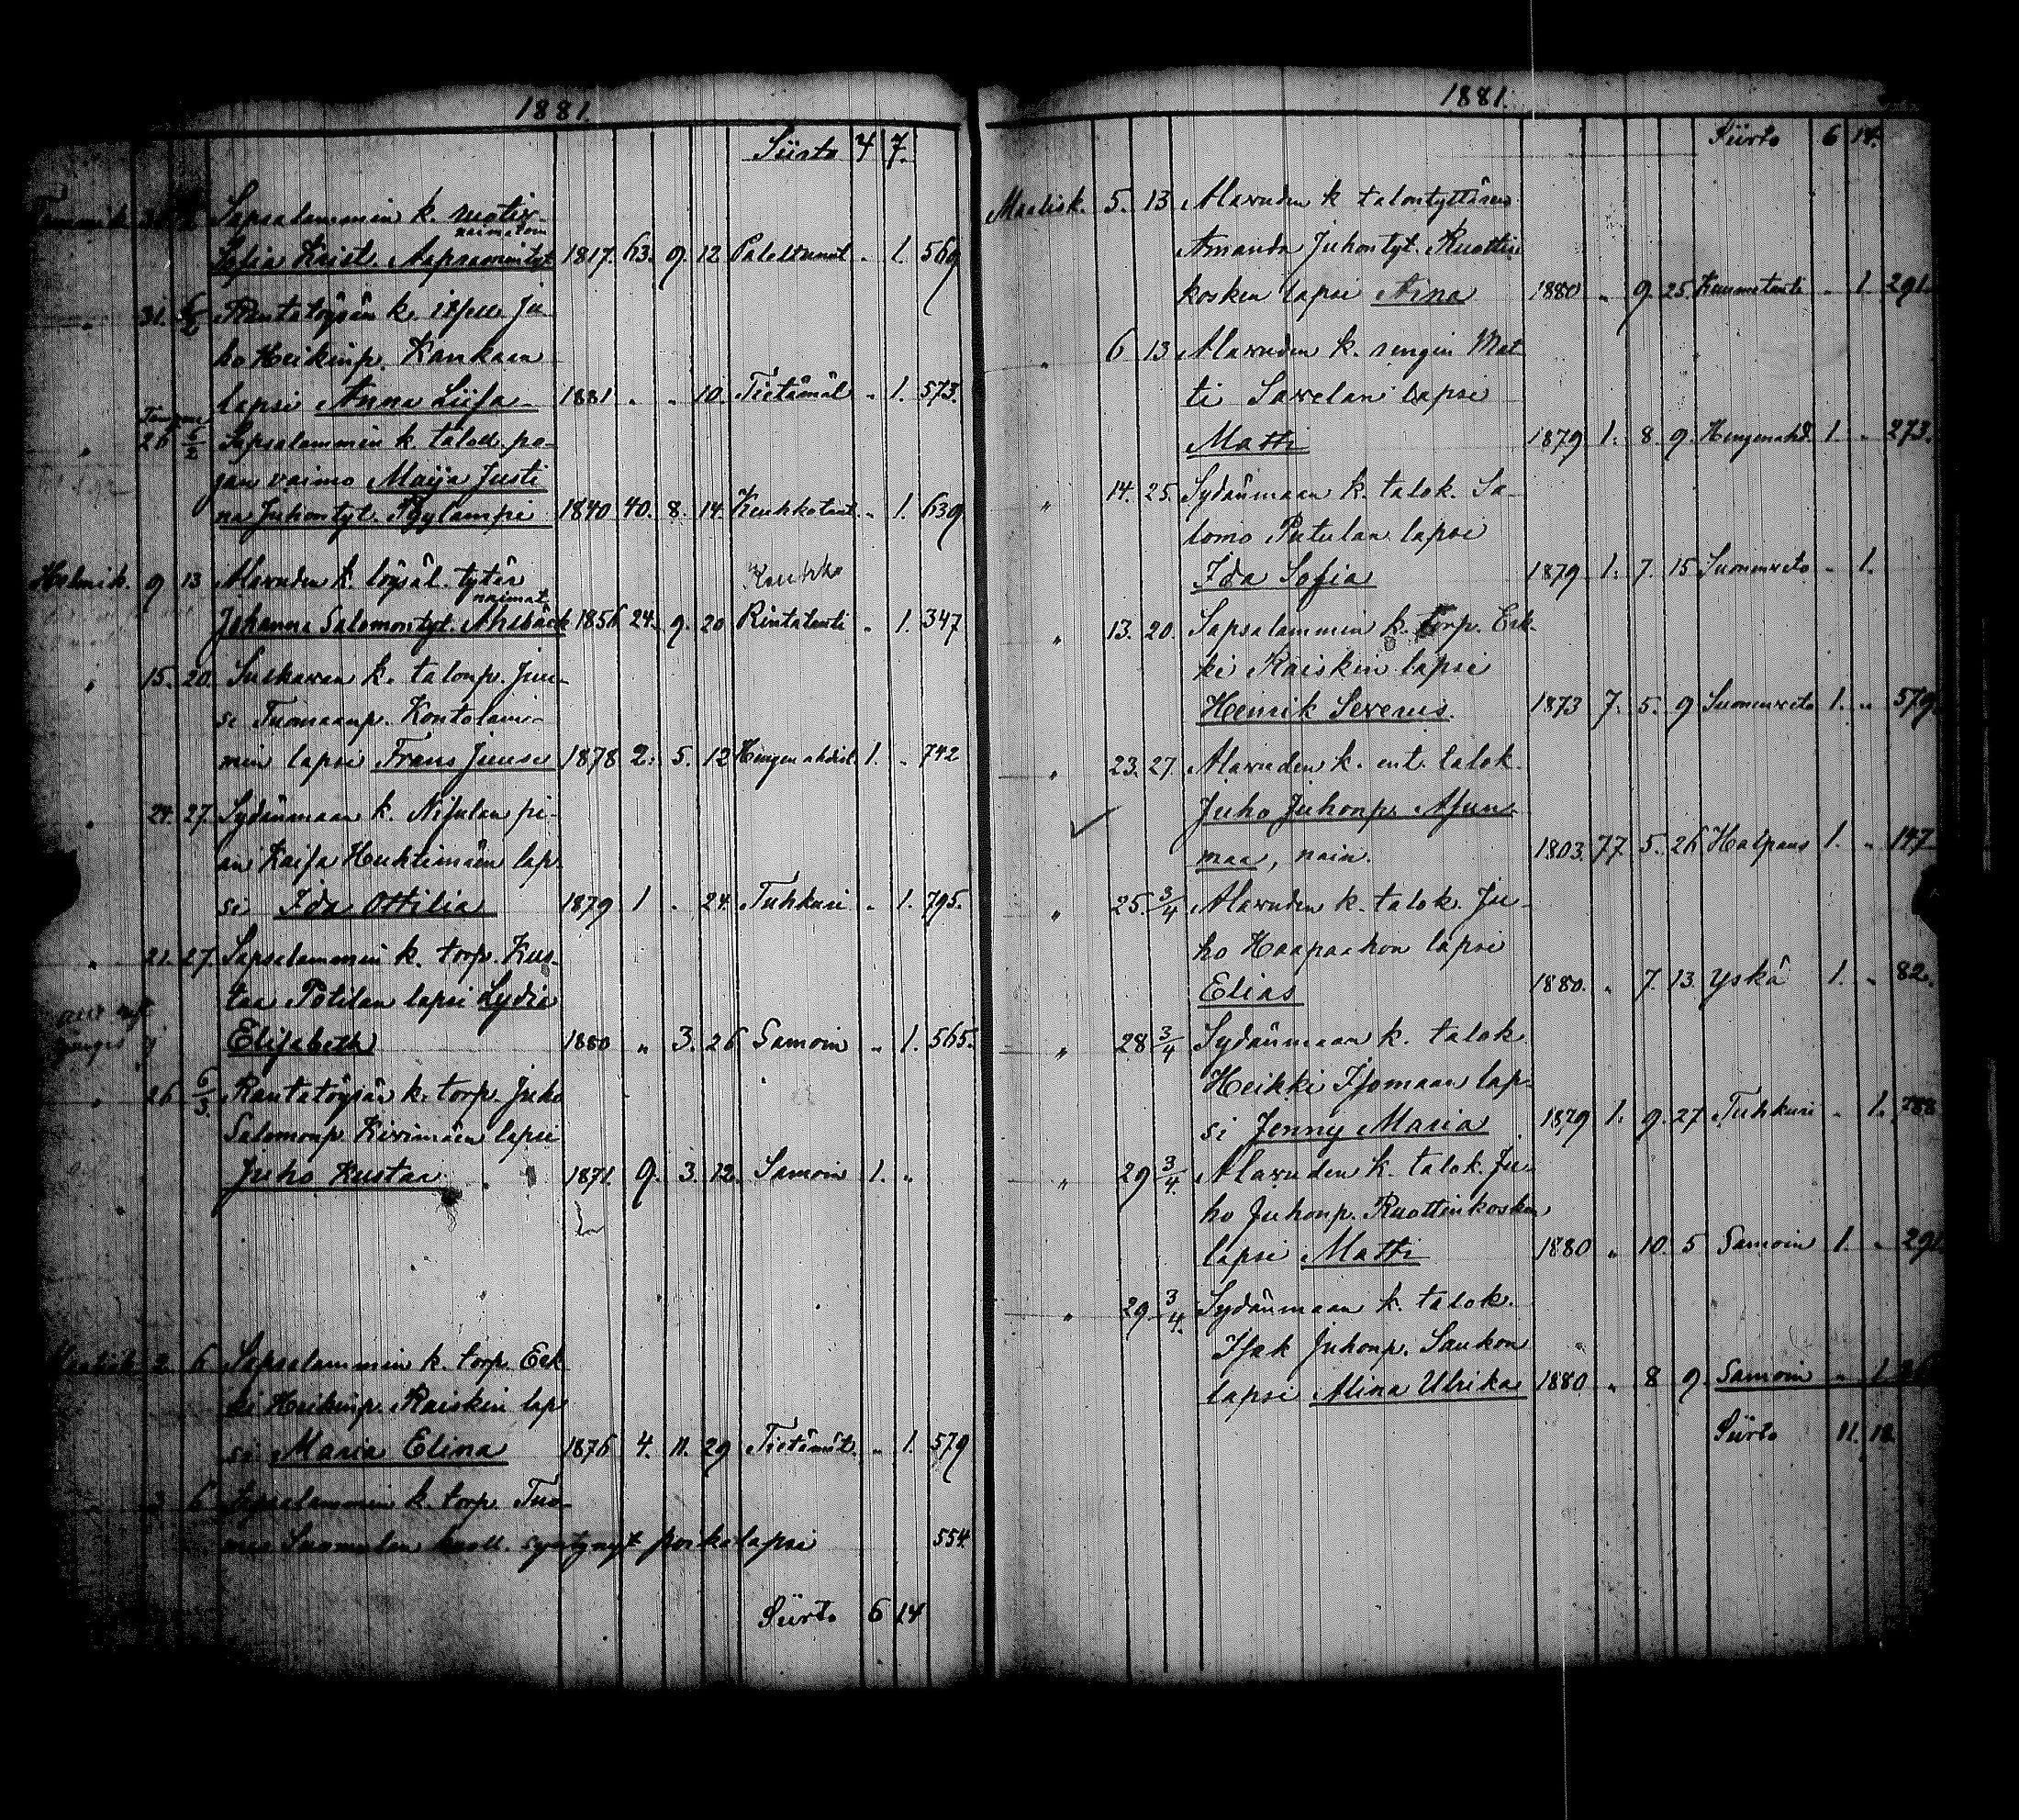 1881.
Siirto 4 7.
Sapsalammin k. ruotiv.
naimatoin
Sofia Kaist. Aapramintyt. 1817. 63. 9. 12 Poltetaut „ 1. 569
„ 31. 6/2 Rantatöysän k. itsell. Ju-
ho Heikinp. Kankaan
lapsi Anna Liisa 1881 „ „ 10. Tietämät. „ 1. 573.
„ 26 6/2 Sapsalammin k. taloll. po-
jan vaimo Maija Justi
na Juhontyt. Pöylampi 1840 40. 8. 14. Keuhkotaut. „ 1. 639
Helmik. 9 13 Alavuden k. löysäl. tytär
naimat.
Keuhko
Johanna Salomontyt. Ahlbäck 1856 24. 9. 20 Rintatauti „ 1. 347
„ 15. 20. Sulkavan k. talonp. Juu-
se Tuomaanp. Kontolam-
min lapsi Frans Juuse 1878 2. 5. 12 Hengenahdist. 1. „ 742
„ 24. 27. Sydänmaan k. Nisulan pi-
an Kaisa Huhtimäen lap-
si Ida Ottilia 1879 1 „ 24. Tuhkuri „ 1. 795.
„ 21. 27. Sapsalammin k. torp. Kus-
taa Potilan lapsi Lydia
Elisabeth 1880 „ 3. 26 Samoin „ 1. 565.
„ 26 6/3 Rantatöysän k. torp. Juho
Salomonp. Kivimäen lapsi
Juho Kustaa 1871. 9. 3. 12. Samoin 1. „
Maalisk. 2. 6 Sapsalammin k. torp. Erk
ki Heikinp. Kaiskin lap-
si Maria Elina 1876 4. 11. 29 Tietämät. „ 1. 579
„ 3 6 Sapsalammin k. torp. Tuo-
mas Suomelan kuoll. syntynyt poikalapsi 554.
Siirto 6 14
1881.
Siirto 6 14.
Maalisk. 5. 13 Alavuden k. talontyttären
Amanda Juhontyt. Ruottin
kosken lapsi Aina 1880 „ 9. 25. „ 1. 291.
„ 6 13 Alavuden k. rengin Mat
ti Savelan lapsi
Matti 1879 1. 8. 9. Hengenahd. 1. „ 273.
„ 14. 25. Sydänmaan k. talok. Sa-
lomo Putulan lapsi
Ida Sofia 1879 1. 7. 15 Suonenveto „ 1.
„ 13. 20. Sapsalammin k. torp. Erk-
ki Kaiskin lapsi
Henrik Severus. 1873 7. 5. 9 Suonenveto 1. „ 579.
„ 23. 27. Alavuden k. ent. talok.
Juho Juhonp. Asun-
maa, nain. 1803. 77. 5. 26 Halpaus 1. „ 147
„ 25. 3/4 Alavuden k. talok. Ju-
ho Haapaahon lapsi
Elias 1880. „ 7. 13. Yskä 1. „ 82.
„ 28 3/4 Sydänmaan k. talok.
Heikki Isomaan lap-
si Jenny Maria 1879 1. 9. 27 Tuhkuri „ 1. 788
„ 29 3/4. Alavuden k. talok. Ju-
ho Juhonp. Ruottinkosken
lapsi Matti 1880 „ 10. 5 Samoin 1. „ 291
„ 29 3/4. Sydänmaan k. talok.
Isak Juhonp. Saukon
lapsi Alina Ulrika 1880 „ 8 9. Samoin „ 1.
Siirto 11. 18.